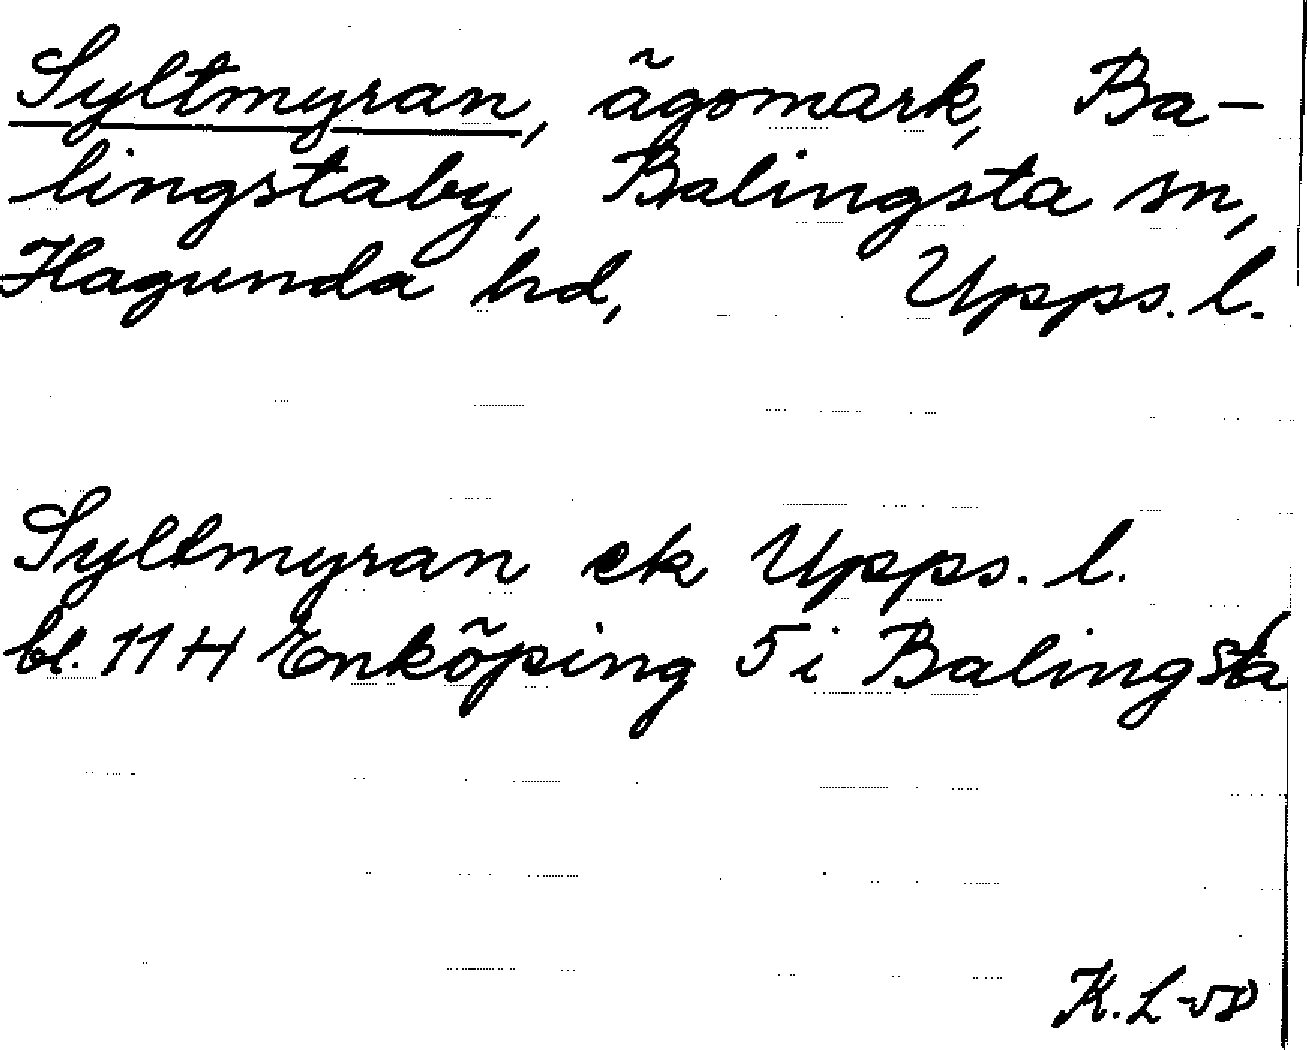 Syltmyran, ägomark, Ba-
lingstaby, Balingsta sn,
Hagunda hd, Upps. l.
Syltmyran ek Upps. l.
bl. 11 H Enköping 5 i Balingsta
K. L-vD